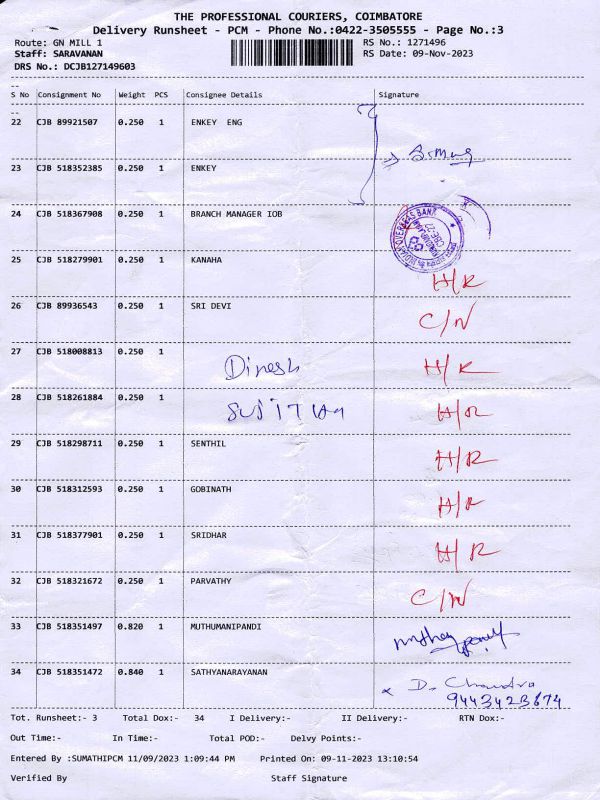 THE PROFESSIONAL COURIERS, COIMBATORE
Delivery Runsheet - PCM - Phone No.:0422-3505555 - Page No.:3
Route: GN MILL 1 RS No.: 1271496
Staff: SARAVANAN RS Date: 09-Nov-2023
DRS No.: DCJB127149603
--
S No Consignment No Weight PCS Consignee Details Signature
--
22 CJB 89921507 0.250 1 ENKEY ENG
23 CJB 518352385 0.250 1 ENKEY
24 CJB 518367908 0.250 1 BRANCH MANAGER IOB
INDIAN OVERSEAS BANK
25 CJB 518279901 0.250 1 KANAHA H/R
26 CJB 89936543 0.250 1 SRI DEVI C/N
27 CJB 518008813 0.250 1 Dinesh H/R
28 CJB 518261884 0.250 1 H/R
29 CJB 518298711 0.250 1 SENTHIL H/R
30 CJB 518312593 0.250 1 GOBINATH H/R
31 CJB 518377901 0.250 1 SRIDHAR H/R
32 CJB 518321672 0.250 1 PARVATHY C/N
33 CJB 518351497 0.820 1 MUTHUMANIPANDI
34 CJB 518351472 0.840 1 SATHYANARAYANAN D. Chandra
9443423674
Tot. Runsheet:- 3 Total Dox:- 34 I Delivery:- II Delivery:- RTN Dox:-
Out Time:- In Time:- Total POD:- Delvy Points:-
Entered By :SUMATHIPCM 11/09/2023 1:09:44 PM Printed On: 09-11-2023 13:10:54
Verified By Staff Signature